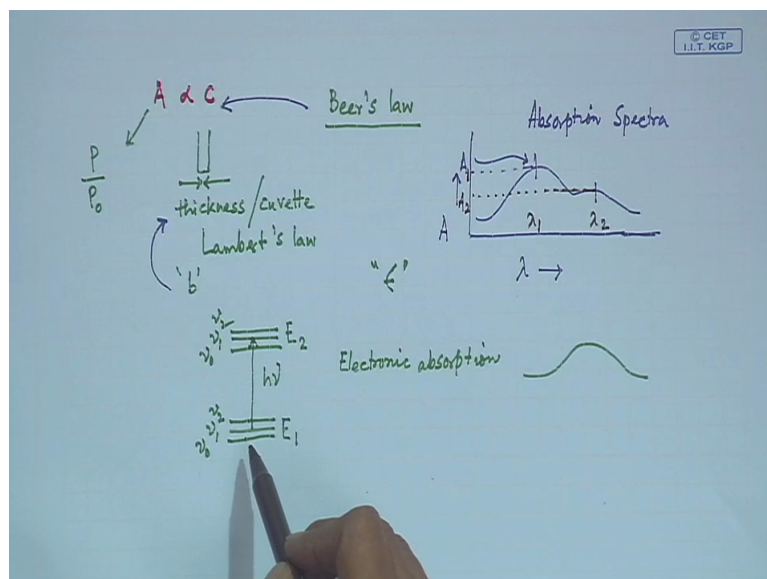 © CET
I.I.T. KGP
A ∝ C
Beer's law
P
P₀
thickness / cuvette
Lambert's law
'b'
"ϵ"
Absorption Spectra
A₁
A₂
A
λ₁
λ₂
λ →
ν₂
ν₁
ν₀
E₂
hν
ν₂
ν₁
ν₀
E₁
Electronic absorption